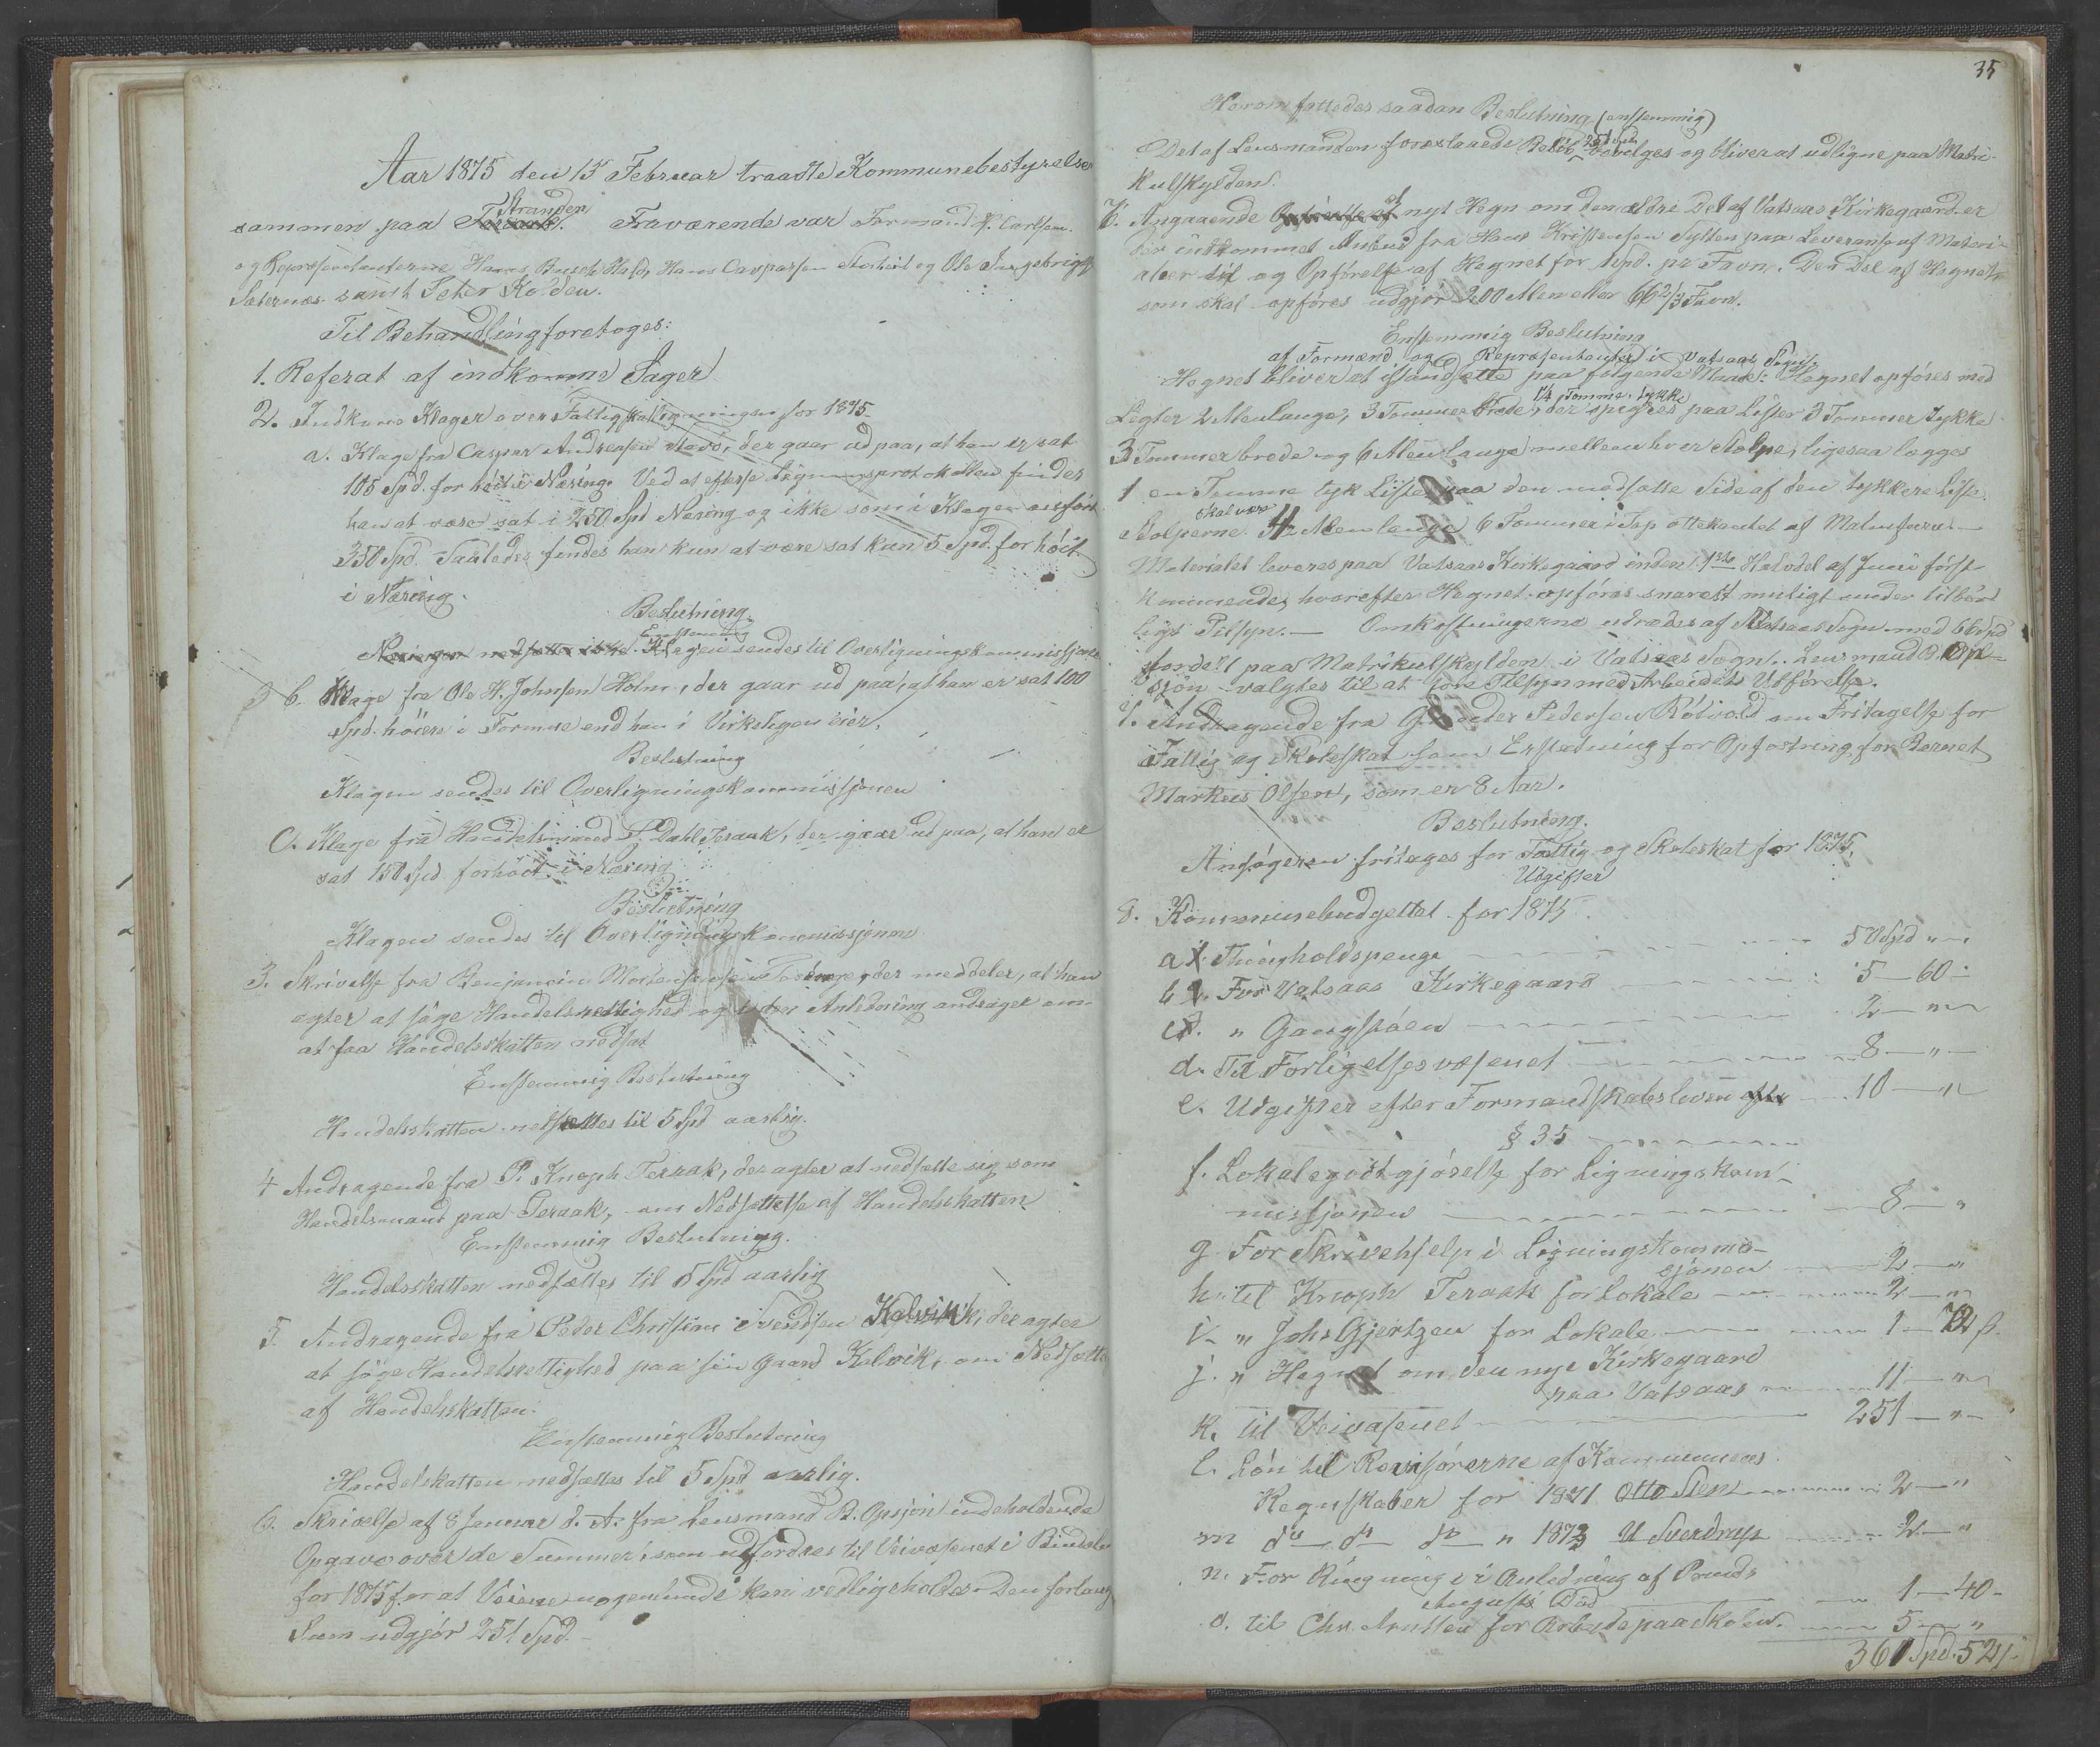 Aar 1875 den 15 Februar traadte Kommunebestyrelsen
sammen paa Stranden. Fraværende var Formand H. Carlsen
og Repræsentanterne Hans Busch Hald, Hans Casparsen og Ole Ingebrigts
Sæternæs samt Peter Kolden.
Til Behandling foretoges:
1. Referat af indkomne Sager
2. Indkomne Klager over Fattigskatligningen for 1875.
a. Klage fra Caspar Andreasen, der gaar ud paa, at han er sat
105 Spd. for høit i Næring. Ved at efterse Ligningsprotokollen findes
han at være sat i 250 Spd Næring og ikke som i Klagen anført
350 Spd. Saaledes findes han kun at være sat kun 5 Spd. for høit
i Næring.
Beslutning.
Enstemmig
Klagen sendes til Overligningskommissjonen
b. Klage fra Ole H. Johnsen Holm, der gaar ud paa, at han er sat 100
Spd. høiere i Formue end han i Virkeligen eier.
Beslutning
Klagen sendes til Overligningskommissjonen
c. Klage fra Handelsmand P. Dahl Teraak, der gaar ud paa, at han er
sat 150 Spd for høit i Næring
Beslutning
Klagen sendes til Overligningskommissjonen
3. Skrivelse fra Benjamin Mortensen, der meddeler, at han
agter at søge Handelsrettighed og i den Anledning andrager om
at faa Handelsskatten nedsat
Enstemmig Beslutning
Handelsskatten nedsættes til 5 Spd aarlig.
4 Andragende fra P. Knoph Teraak, der agter at nedsætte sig som
Handelsmand paa Teraak, om Nedsættelse af Handelsskatten
Enstemmig Beslutning.
Handelsskatten nedsættes til 5 Spd aarlig
5. Andragende fra Peder Christian Svendsen Kalvik, der agter
at søge Handelsrettighed paa sin Gaard Kalvik, om Nedsætt
af Handelsskatten.
Enstemmig Beslutning
Handelskatten nedsættes til 5 Spd aarlig.
6. Skrivelse af 8 Januar d. A. fra Lensmand B. Opsjøn indeholdende
Opgave over de Summer, som udfordres til Veivæsenet i Bindalen
for 1875 for at Veiene nogenlunde kan vedligeholdes. Den forlangte
Sum udgjør 251 Spd.
35
Herom fattedes saadan Beslutning (enstemmig)
Det af Lensmanden foreslaaede Beløb 251 Spd bevilges og bliver at udligne paa Matri-
kulskylden.
Angaaende nyt Hegn om den ældre Del af Vatsaas Kirkegaard er
der indkommet Anbud fra Hans Kristensen Sylten paa Leveranse af Materi-
aler til og Opførelse af Hegnet for 1 Spd. pr Favn. Den Del af Hegnet,
som skal opføres udgjør 200 Alen eller 66 2/3 Favn.
Enstemmig Beslutning
af Formænd og Repræsentanter i Vatsaas Sogn.
Hegnet bliver at istandsætte paa følgende Maade: Hegnet opføres med
1 1/4 Tomme tykke
Legter 2 Alen lange, 3 Tommer brede, der spigres paa Lister 3 Tommer tykke
3 Tommer brede og 6 Alen lange mellem hver Stolpe, ligesaa lægges
1 en Tomme tyk Liste paa den modsatte Side af den tykkere Liste.
skal være
Stolperne 4 Alen lange 6 Tommer i Top ottekantet af Malmfuru.
Materialet leveres paa Vatsaas Kirkegaard inden 1ste Halvdel af Juni først-
kommende, hvorefter Hegnet opføres snarest muligt under tilbør-
ligt Tilsyn. — Omkostningerne udredes af Vatsaas Sogn med 66 Spd
fordelt paa Matrikulskylden i Vatsaas Sogn. Lensmand B. Op-
sjøn valgtes til at føre Tilsyn med Arbeidets Udførelse.
Andragende fra Pedersen om Fritagelse for
Fattig og Skoleskat som Erstatning for Opfostring for Barnet
Markus Olsen, som er 8 Aar.
Beslutning.
Ansøgeren fritages for Fattig og Skoleskat for 1875.
Udgifter
8. Kommunebudgettet for 1875.
a. Thingholdspenge 50 Spd " —
b. For Vatsaas Kirkegaard 5 — 60 —
c. " 2 — " —
d. Til Forligelsesvæsenet 8 — " —
e. Udgifter efter Formandskabsloven 10 — "
§ 35
f. Lokalegodtgjørelse for Ligningskom-
missjonen 8 — "
g For Skrivehjelp i Ligningskommis-
sjonen 2 — "
h. til Knoph Teraak for Lokale 2 — "
i. " Johs Gjertzen for Lokale 1 — 72 ß.
j. " Hegnet om den nye Kirkegaard
paa Vatsaas 11 — "
k. til Veivæsenet 251 — " —
l. Løn til Revisørerne af Kommunens
Regnskaber for 1871 Otto Sten 2 — "
m do do do " 1873 U Sverdrup 2 — "
n. For Ringning i Anledning af Prinds
Augusts Død 1 — 40 —
o. til Chr. for Arbeide paa Skolen. 5 — "
361 Spd. 52 ß.